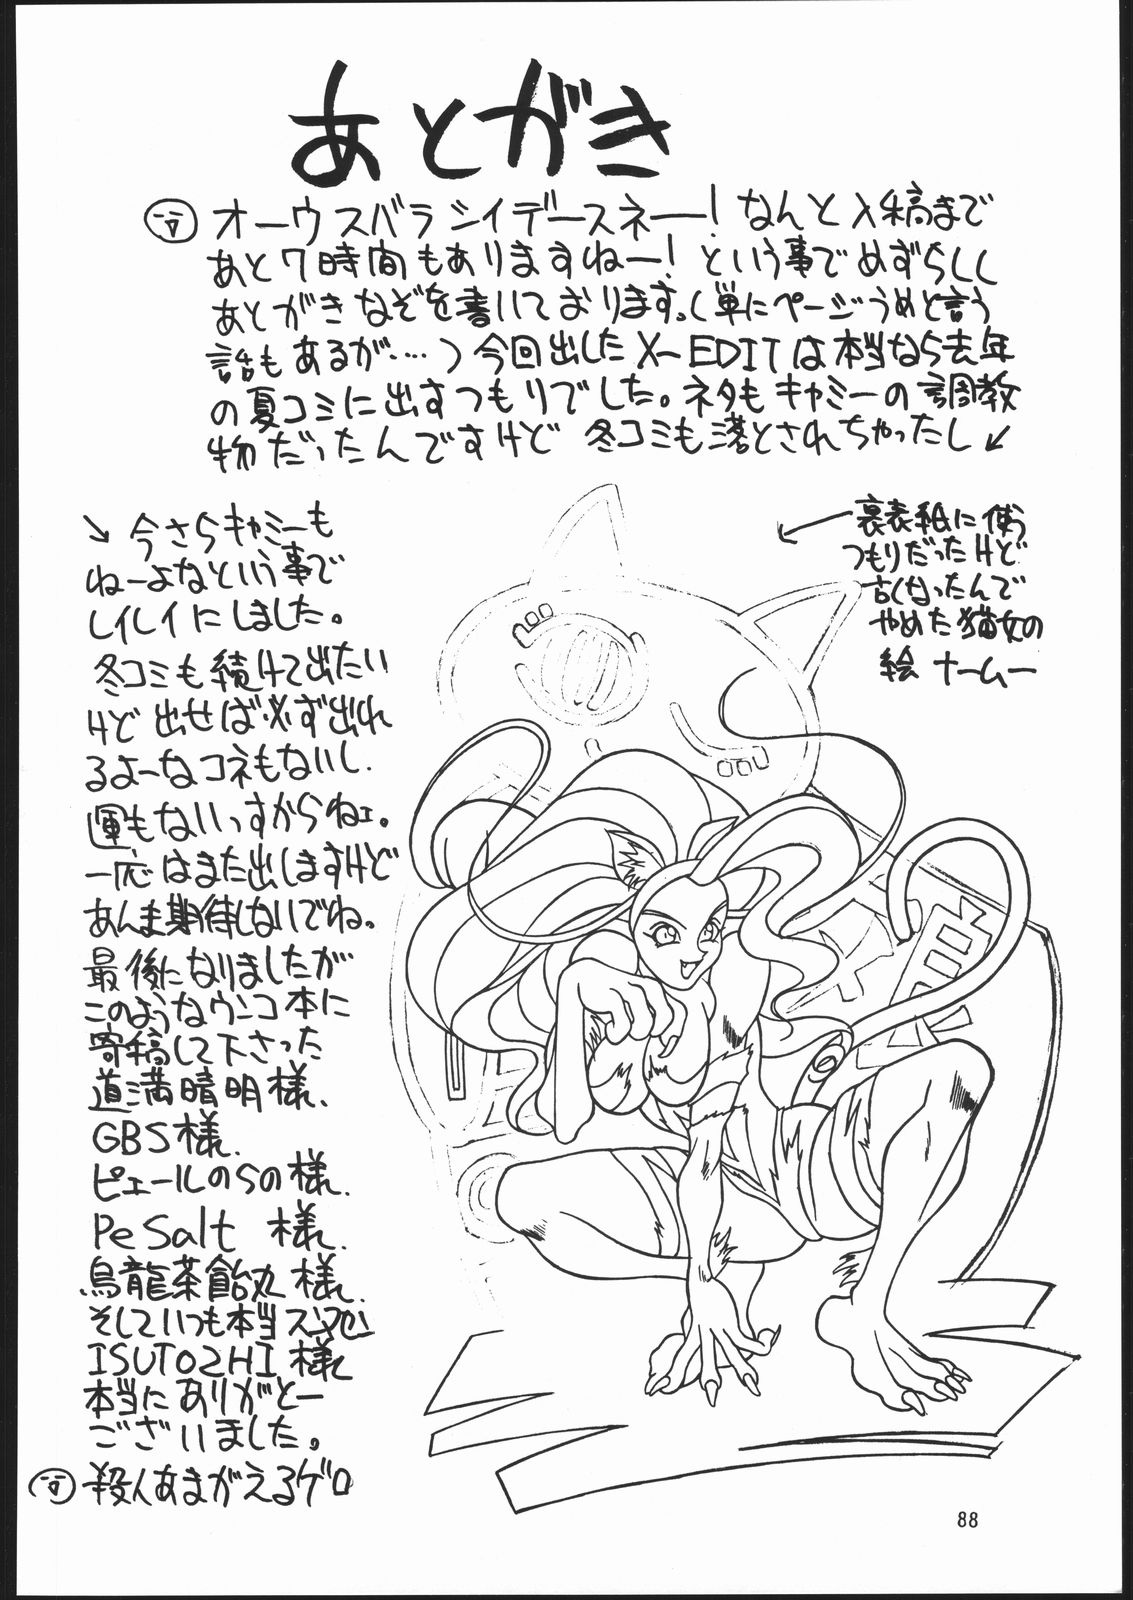 あとがき
オーウスバラシイデースネー!なんと入稿まで
あと7時間もありますねー!という事でめずらしく
あとがきなぞを書いております。(単にページうめと言う
話もあるが・・・・)今回出したX-EDITは本当なら去年
の夏コミに出すつもりでした。ネタもキャミーの調教
物だったんですけど冬コミも落とされちゃったし↙
↘今さらキャミーも
ねーよなという事で
レイレイにしました。
冬コミも続けて出たい
けど出せば必ず出れ
るよーなコネもないし、
運もないっすからねェ。
一応はまた出しますけど
あんま期待しないでね。
最後になりましたが
このようなウンコ本に
寄稿して下さった
道満晴明様、
GBS様、
ピエールのSの様、
Pe Salt 様、
烏龍茶飴丸様、
そしていつも本当スンマセン
ISUTOSHI様
本当にありがとー
ございました。
殺人あまがえるゲロ
←裏表紙に使う
つもりだったけど
古くなったんで
やめた猫女の
絵 ナームー
88